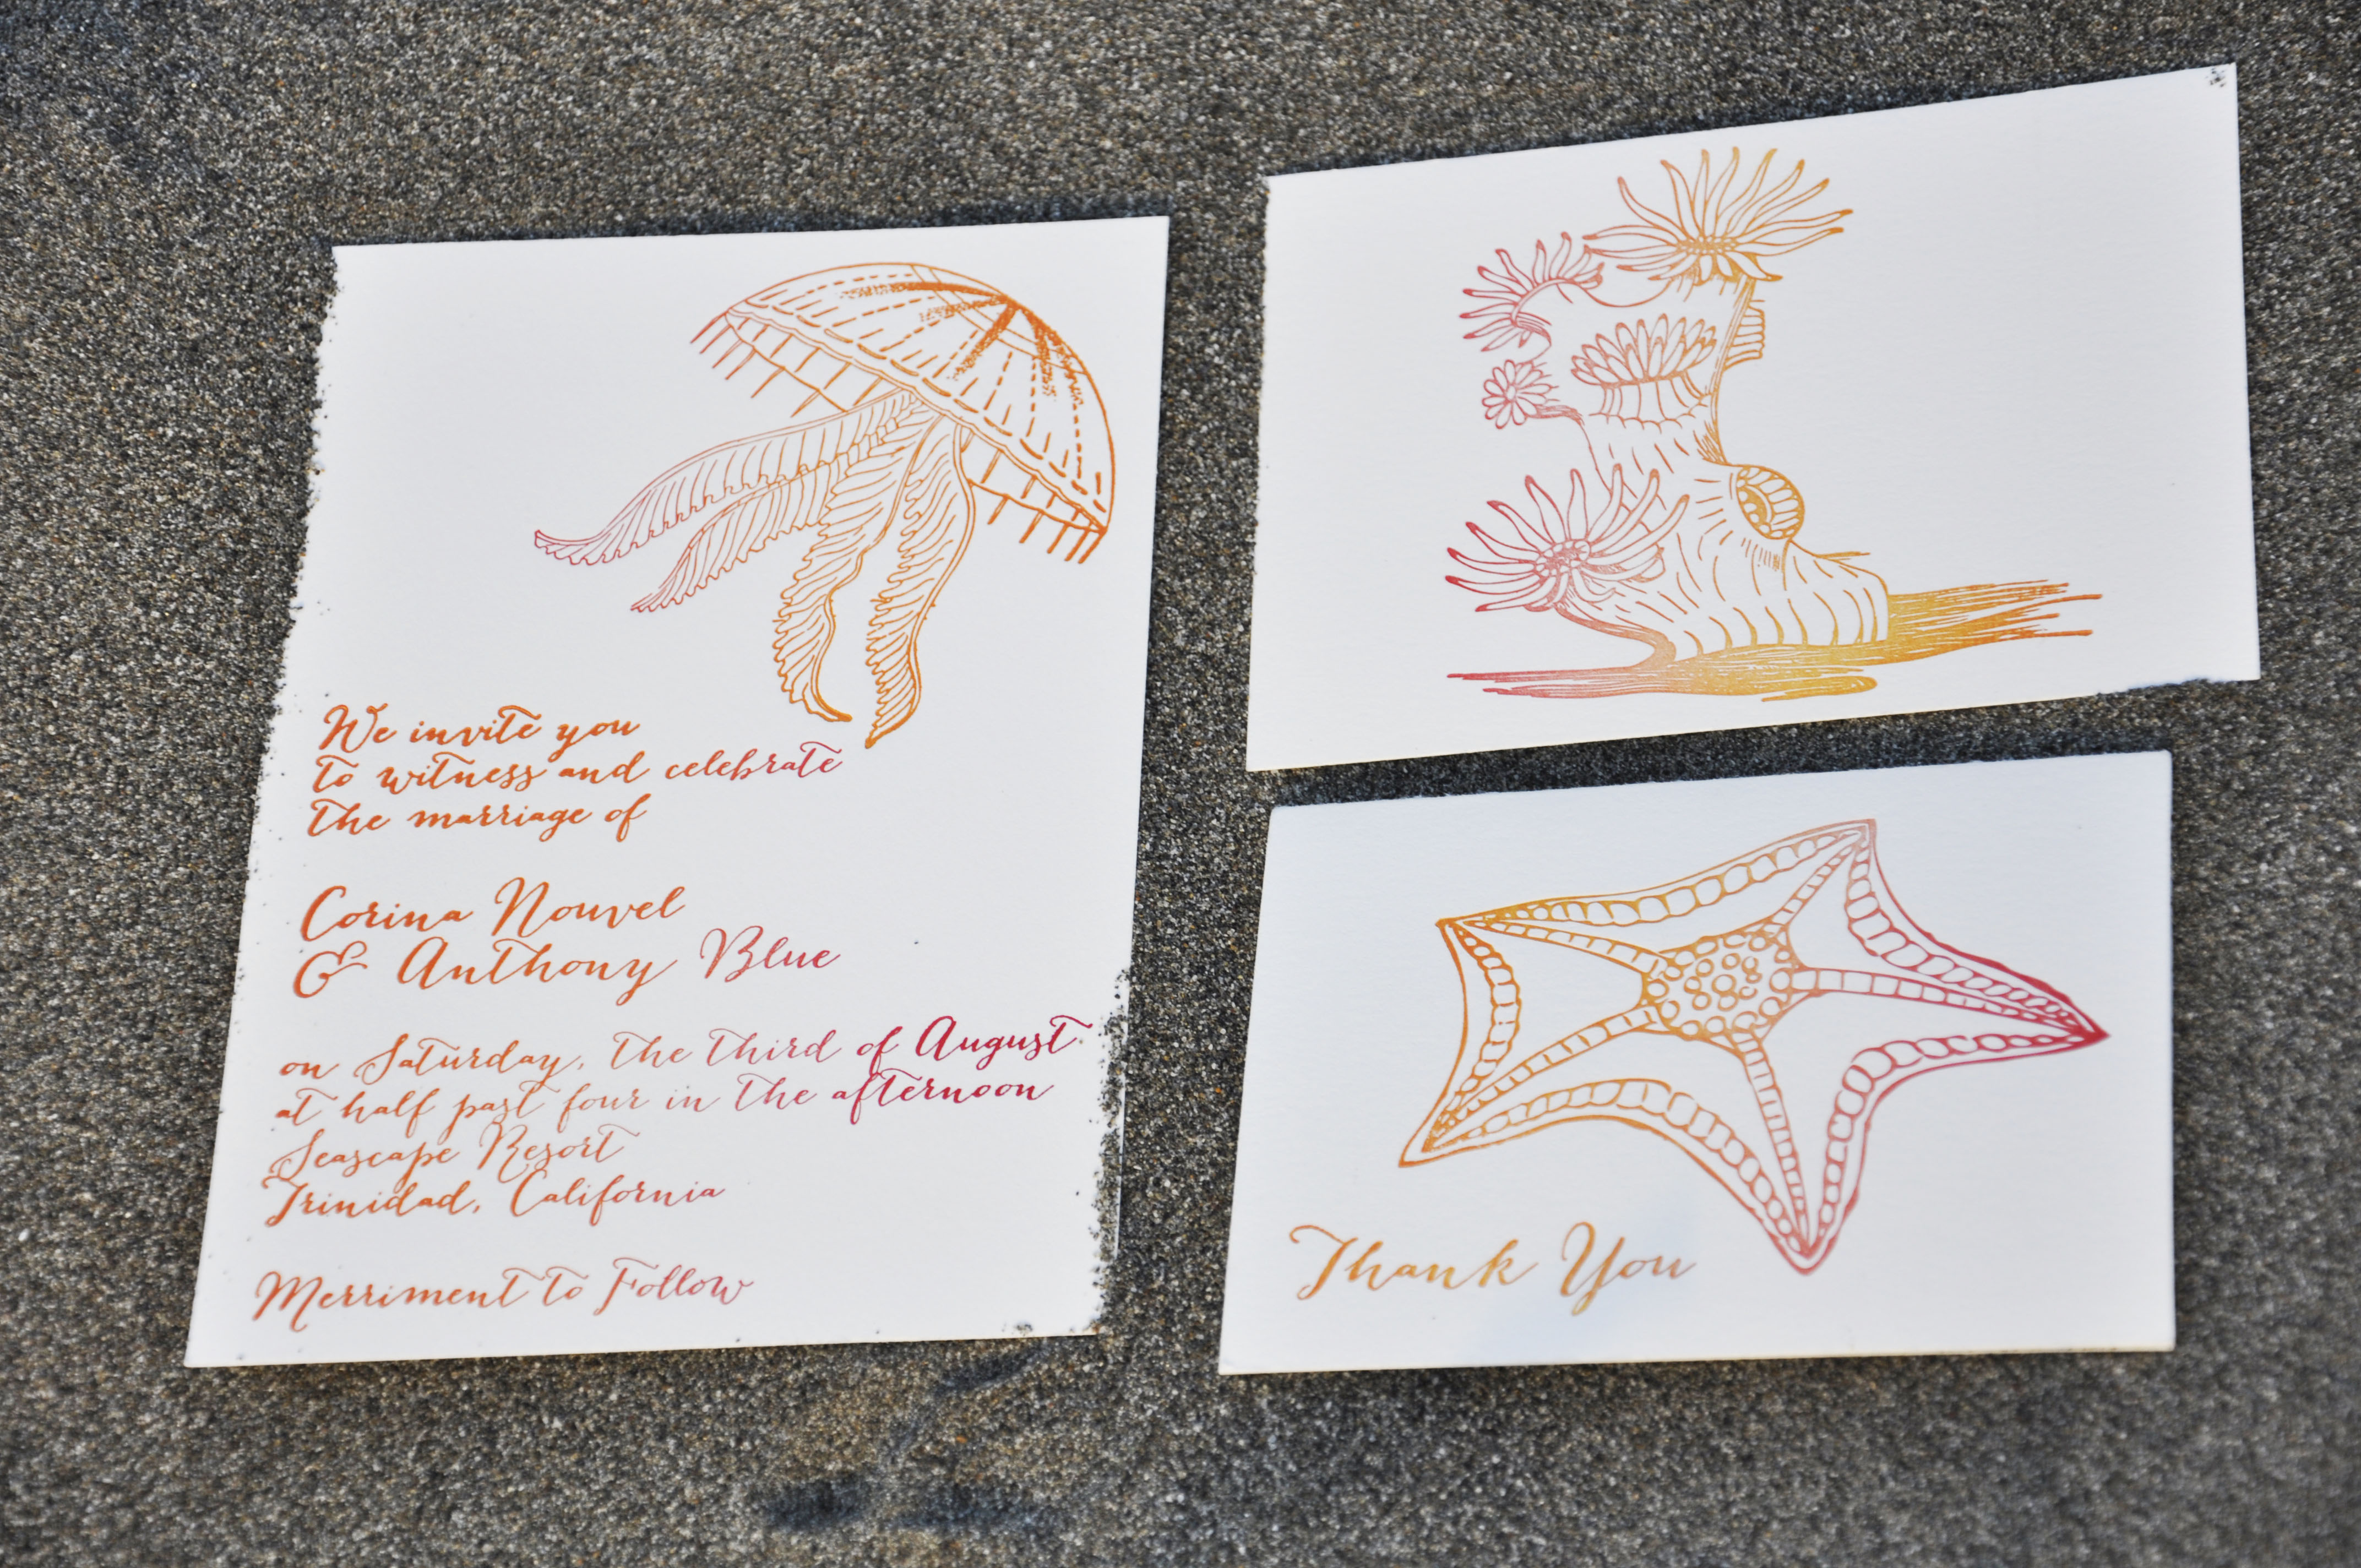 We invite you
to witness and celebrate
the marriage of
Corina Nouvel
& Anthony Blue
on Saturday, the third of August
at half past four in the afternoon
Seascape Resort
Trinidad, California
Merriment to Follow
Thank You